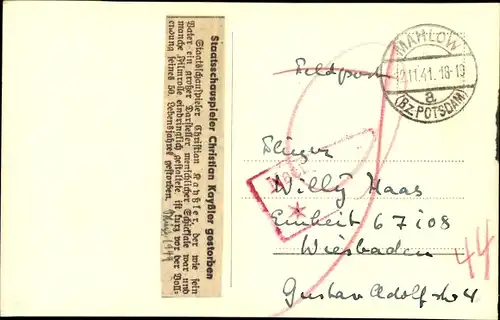 Staatsschauspieler Christian Kayßler gestorben
Staatsschauspieler Christian Kayßler, der wie sein
Vater ein großer Darsteller menschlicher Schicksale war und
manche Filmrolle eindringlich gestaltete, ist kurz vor der Voll-
endung seines 50. Lebensjahres gestorben.
1944
MAHLOW
11.41.18-19
a
(BZ POTSDAM)
Feldpost
Flieger
Willy Haas
Einheit 67108
Wiesbaden
Gustav Adolfstr 4
44